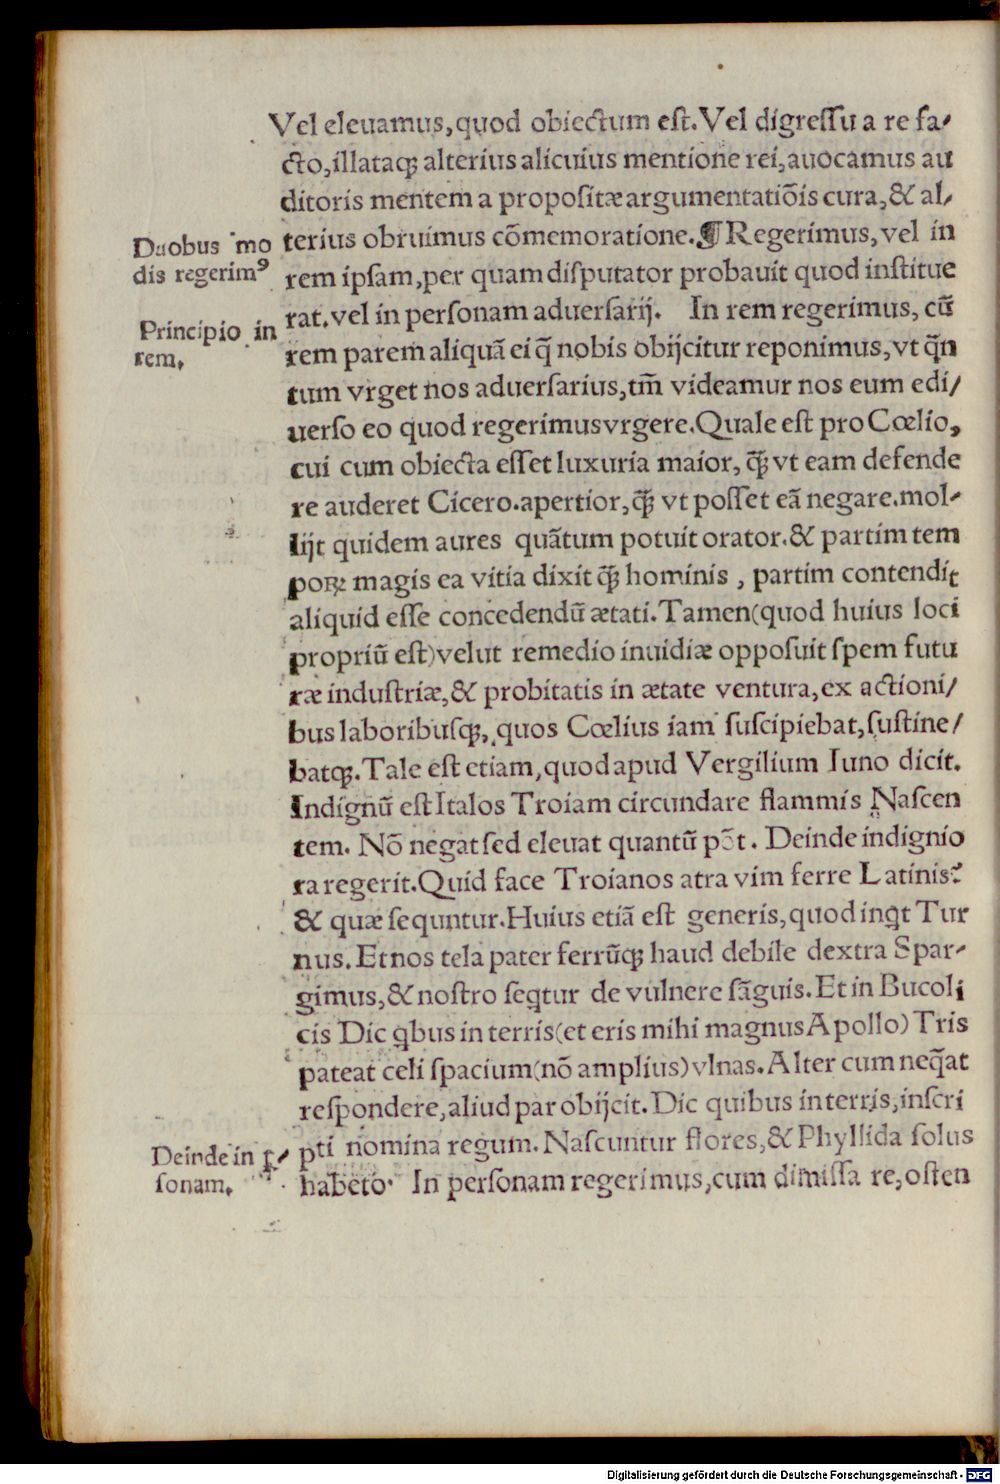 Vel eleuamus,quod obiectum est.Vel digressu a re fa-
cto,illataqꝫ alterius alicuius mentione rei,auocamus au
ditoris mentem a propositæ argumentatiõis cura,& al-
Duobus mo
dis regerimꝰ
terius obruimus cõmemoratione.¶Regerimus,vel in
rem ipsam,per quam disputator probauit quod institue
rat.vel in personam aduersarij. In rem regerimus, cũ
Principio in
rem.
rem parem aliquã ei q̃ nobis obijcitur reponimus,vt q̃n
tum vrget nos aduersarius,tm̃ videamur nos eum edi/
uerso eo quod regerimus vrgere.Quale est pro Cœlio,
cui cum obiecta esset luxuria maior, q̃ꝫ vt eam defende
re auderet Cicero.apertior,q̃ꝫ vt posset eã negare.mol-
lijt quidem aures quãtum potuit orator.& partim tem
poꝝ magis ea vitia dixit q̃ꝫ hominis , partim contendit
aliquid esse concedendũ ætati.Tamen(quod huius loci
propriũ est)velut remedio inuidiæ opposuit spem futu
ræ industriæ,& probitatis in ætate ventura,ex actioni/
bus laboribusqꝫ,quos Cœlius iam suscipiebat,sustine/
batqꝫ.Tale est etiam,quod apud Vergilium Iuno dicit.
Indignũ est Italos Troiam circundare flammis Nascen
tem. Nõ negat sed eleuat quantũ põt. Deinde indignio
ra regerit.Quid face Troianos atra vim ferre Latinis?
& quæ sequntur.Huius etiã est generis,quod inꝗt Tur
nus.Et nos tela pater ferrũqꝫ haud debile dextra Spar-
gimus,& nostro seꝗtur de vulnere sãguis.Et in Bucoli
cis Dic ꝗbus in terris(et eris mihi magnus Apollo)Tris
pateat celi spacium(nõ amplius)vlnas.Alter cum neq̃at
respondere,aliud par obijcit.Dic quibus in terris,inscri
pti nomina regum.Nascuntur flores,& Phyllida solus
Deinde in ꝑ-
sonam.
habeto. In personam regerimus,cum dimissa re,osten
Digitalisierung gefördert durch die Deutsche Forschungsgemeinschaft - DFG